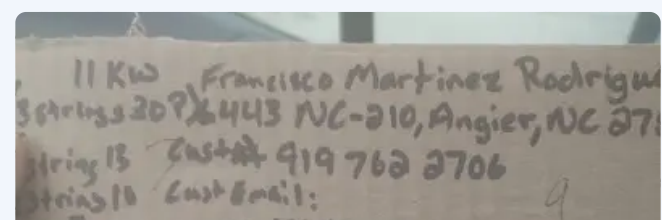 11 KW Francisco Martinez Rodrigu
3 strings 30 P) 6443 NC-210, Angier, NC 27
string 13 Cust# 919 762 2706
strings 16 Cust Email:
9